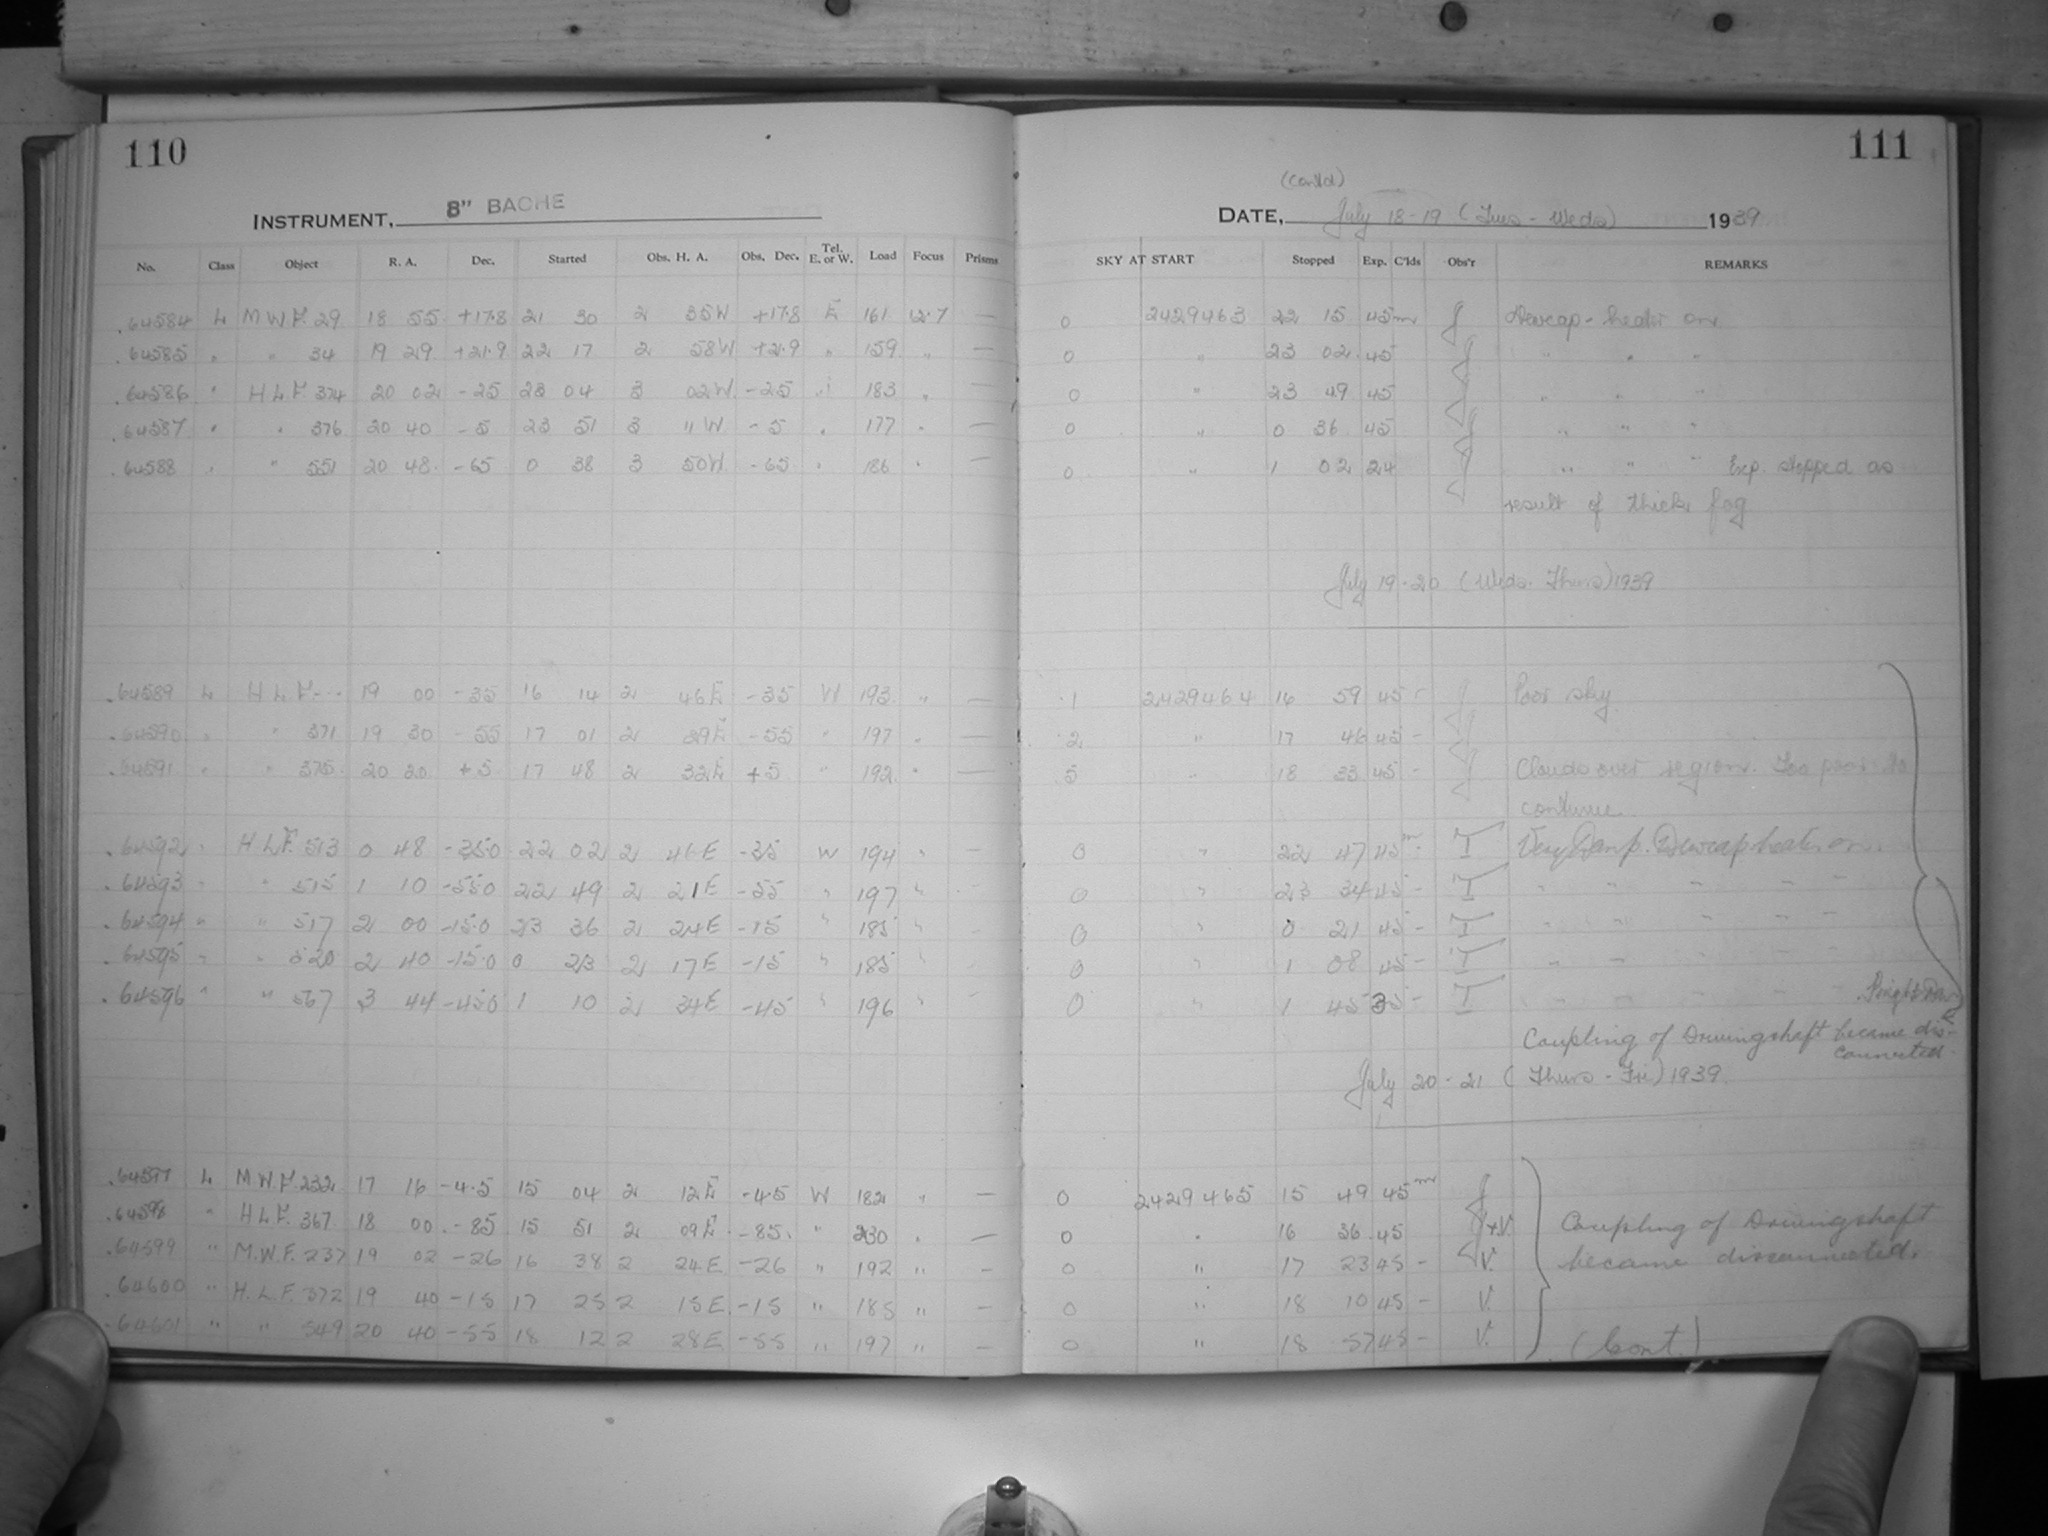 110
INSTRUMENT, 8" BACHE
No. Class Object R. A. Dec. Started Obs. H. A. Obs. Dec. Tel. E. or W. Load Focus Prisms
.64584 L M.W.F. 29 18 55 +17.8 21 30 2 35W +17.8 E 161 12.7 —
.64585 " " 34 19 29 +21.9 22 17 2 58W +21.9 " 159 " —
.64586 " H.L.F. 374 20 02 -25 23 04 3 02W -25 " 183 " —
.64587 " " 376 20 40 -5 23 51 3 11W -5 " 177 " —
.64588 " " 551 20 48 -65 0 38 3 50W -65 " 186 " —
.64589 L H.L.F. -- 19 00 -35 16 14 2 46E -35 W 193 " —
.64590 " " 371 19 30 -55 17 01 2 29E -55 " 197 " —
.64591 " " 375 20 20 +5 17 48 2 32E +5 " 192 " —
.64592 " H.L.F. 513 0 48 -35.0 22 02 2 46E -35 W 194 " -
.64593 " " 515 1 10 -55.0 22 49 2 21E -55 " 197 " -
.64594 " " 517 2 00 -15.0 23 36 2 24E -15 " 185 " -
.64595 " " 520 2 40 -15.0 0 23 2 17E -15 " 185 " -
.64596 " " 567 3 44 -45.0 1 10 2 34E -45 " 196 " -
.64597 L M.W.F. 232 17 16 -4.5 15 04 2 12E -4.5 W 182 " —
.64598 " H.L.F. 367 18 00 -85 15 51 2 09E -85 " 230 " —
.64599 " M.W.F. 237 19 02 -26 16 38 2 24E -26 " 192 " -
.64600 " H.L.F. 372 19 40 -15 17 25 2 15E -15 " 185 " -
.64601 " " 549 20 40 -55 18 12 2 28E -55 " 197 " -
111
(Cont'd)
DATE, July 18-19 (Tues - Weds) 1939
SKY AT START Stopped Exp. C'lds Obs'r REMARKS
0 2429463 22 15 45m J Dewcap-heater on
0 " 23 02 45 J " " "
0 " 23 49 45 J " " "
0 " 0 36 45 J " " "
0 " 1 02 24 J " " " Exp. stopped as
result of thick fog
July 19-20 (Weds. Thurs) 1939
1 2429464 16 59 45 - J Poor sky
2 " 17 46 45 - J
5 " 18 33 45 - J Clouds over region. Too poor to
continue
0 " 22 47 45m - T Very Damp. Dewcap heater on.
0 " 23 34 45 - T " " " " "
0 " 0 21 45 - T " " " " "
0 " 1 08 45 - T " " " " "
0 " 1 45 35 - T " " " " "
Coupling of Drivingshaft became dis-
connected
July 20-21 (Thurs - Fri) 1939
0 2429465 15 49 45m J
0 " 16 36 45 J+V.
0 " 17 23 45 - V.
0 " 18 10 45 - V.
0 " 18 57 45 - V.
Coupling of Drivingshaft
became disconnected.
(Cont.)